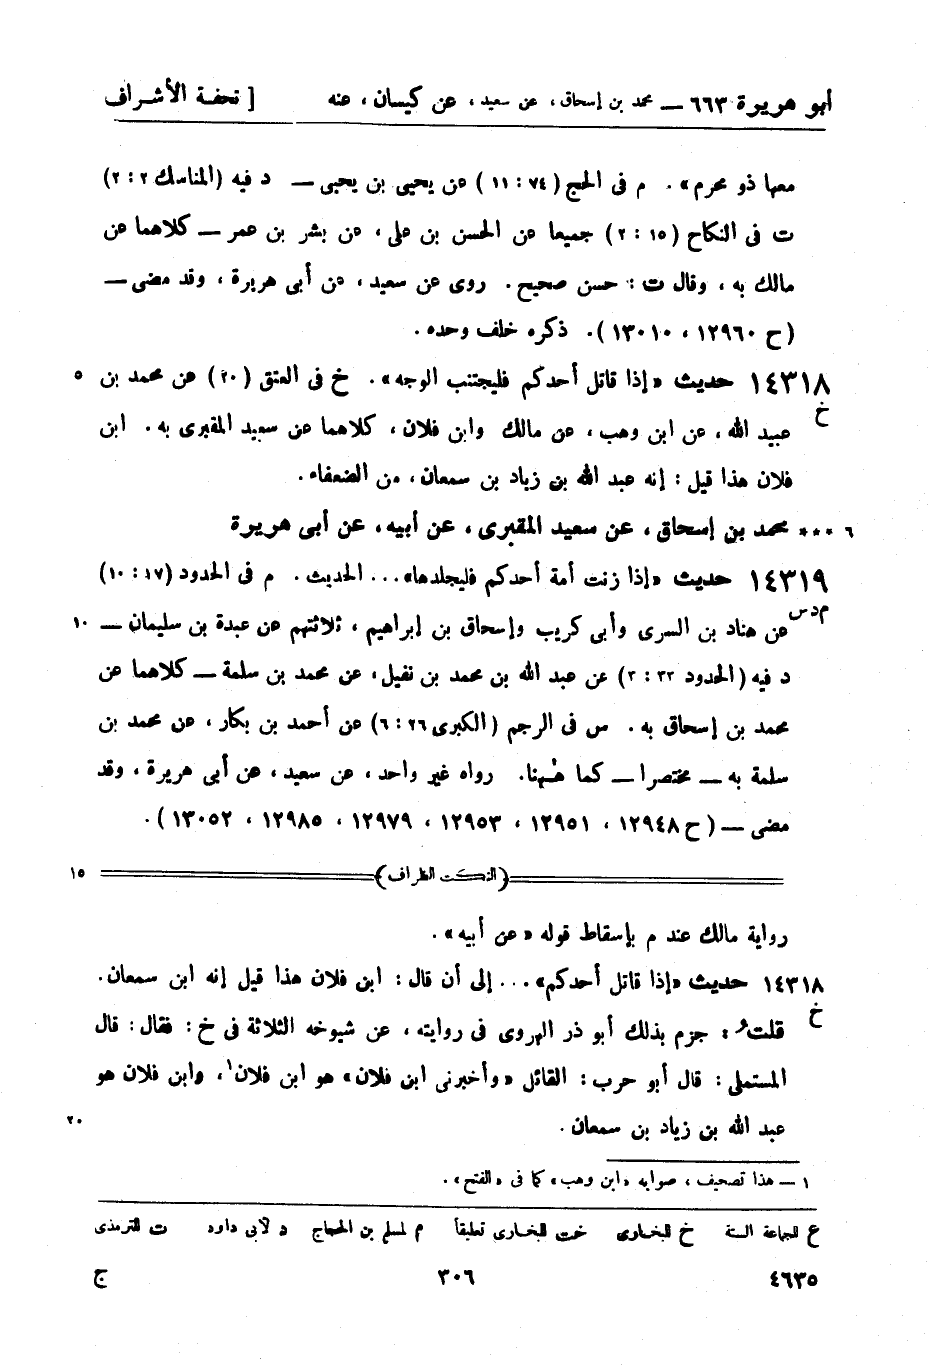 أبو هريرة ٦٦٣ — محمد بن إسحاق، عن سعيد، عن كيسان، عنه [ تحفة الأشراف
معها ذو محرم». م فى الحج (٧٤ : ١١) عن يحيى بن يحيى — د فيه (المناسك ٢ : ٢)
ت فى النكاح (١٥ : ٢) جميعا عن الحسن بن على، عن بشر بن عمر — كلاهما عن
مالك به، وقال ت: حسن صحيح. روى عن سعيد، عن أبى هريرة، وقد مضى —
(ح ١٢٩٦٠، ١٣٠١٠). ذكره خلف وحده.
١٤٣١٨ حديث «إذا قاتل أحدكم فليجتنب الوجه». خ فى العتق (٢٠) عن محمد بن ٥
خ
عبيد الله، عن ابن وهب، عن مالك وابن فلان، كلاهما عن سعيد المقبرى به. ابن
فلان هذا قيل: إنه عبد الله بن زياد بن سمعان، من الضعفاء.
٦ *** محمد بن إسحاق، عن سعيد المقبرى، عن أبيه، عن أبى هريرة
١٤٣١٩ حديث «إذا زنت أمة أحدكم فليجلدها»... الحديث. م فى الحدود (١٧ : ١٠)
م د س
عن هناد بن السرى وأبى كريب وإسحاق بن إبراهيم، ثلاثتهم عن عبدة بن سليمان — ١٠
د فيه (الحدود ٣٣ : ٢) عن عبد الله بن محمد بن نفيل، عن محمد بن سلمة — كلاهما عن
محمد بن إسحاق به. س فى الرجم (الكبرى ٢٦ : ٦) عن أحمد بن بكار، عن محمد بن
سلمة به — مختصرا — كما ههنا. رواه غير واحد، عن سعيد، عن أبى هريرة، وقد
مضى — (ح ١٢٩٤٨، ١٢٩٥١، ١٢٩٥٣، ١٢٩٧٩، ١٢٩٨٥، ١٣٠٥٢).
(النكت الظراف) ١٥
رواية مالك عند م بإسقاط قوله «عن أبيه».
١٤٣١٨ حديث «إذا قاتل أحدكم»... إلى أن قال: ابن فلان هذا قيل إنه ابن سمعان.
خ
قلتُ: جزم بذلك أبو ذر الهروى فى روايته، عن شيوخه الثلاثة فى خ: فقال: قال
المستملى: قال أبو حرب: القائل «وأخبرنى ابن فلان» هو ابن فلان١، وابن فلان هو
عبد الله بن زياد بن سمعان. ٢٠
١ — هذا تصحيف، صوابه «ابن وهب» كما فى «الفتح».
ع للجماعة الستة خ للبخارى خت للبخارى تعليقاً م لمسلم بن الحجاج د لأبى داود ت للترمذى
٤٦٣٥ ٣٠٦ ج